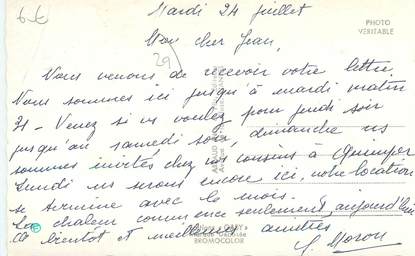 6€
Mardi 24 juillet
PHOTO
VERITABLE
Mon cher Jean,
29
Nous venons de recevoir votre lettre.
Nous sommes ici jusqu'à mardi matin
31 - Venez si vs voulez pour jeudi soir
jusqu'au samedi soir, dimanche ns
sommes invités chez nos cousins à Quimper
Lundi ns serons encore ici, notre location
se termine avec le mois.
La chaleur commence seulement aujourd'hui
A bientôt et meilleures amitiés
BROMOCOLOR